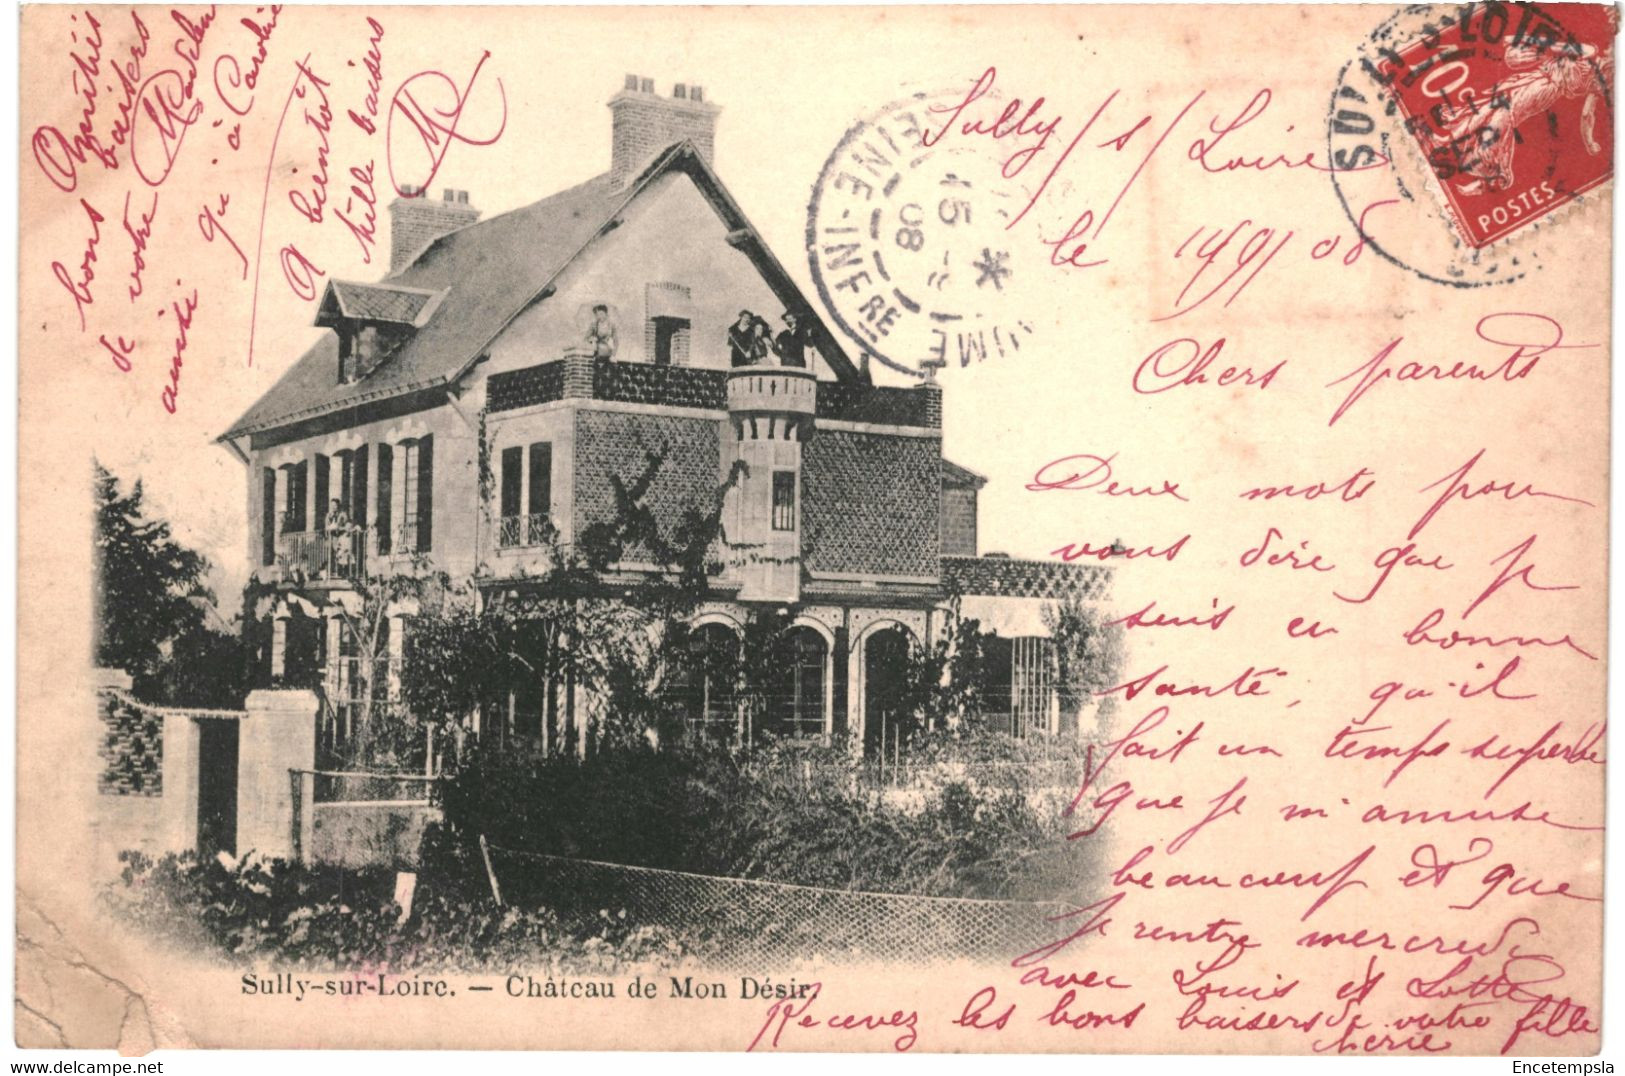 Sully/s/Loire
le 14/9/08
Chers parents
Deux mots pour
vous dire que je
suis en bonne
santé, qu'il
fait un temps superbe
que je m'amuse
beaucoup et que
je rentre mercredi
avec Louis et Lotte
Recevez les bons baisers de votre fille
chérie
Amitiés
bons baisers
de votre
ainsi qu'à Caroline
A bientôt
Mille baisers
SEINE-INFRE
15 -9
08
SULLY-S-LOIRE
10c
POSTES
Sully-sur-Loire. — Château de Mon Désir.
Encetempsla